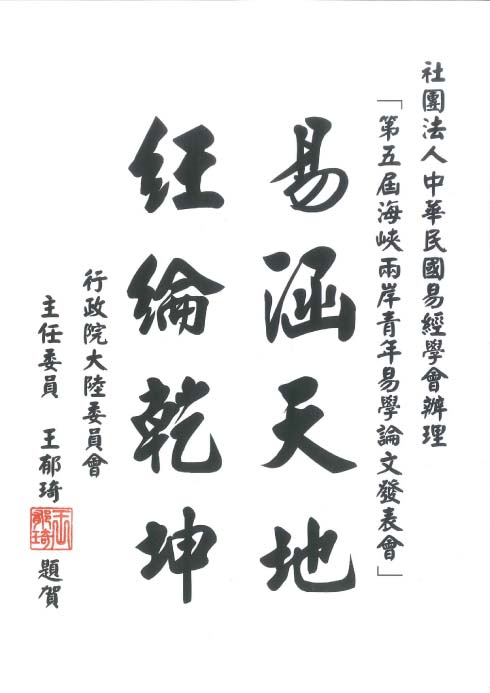 社團法人中華民國易經學會辦理
「第五屆海峽兩岸青年易學論文發表會」
易涵天地
經綸乾坤
行政院大陸委員會
主任委員 王郁琦 題賀
王郁琦